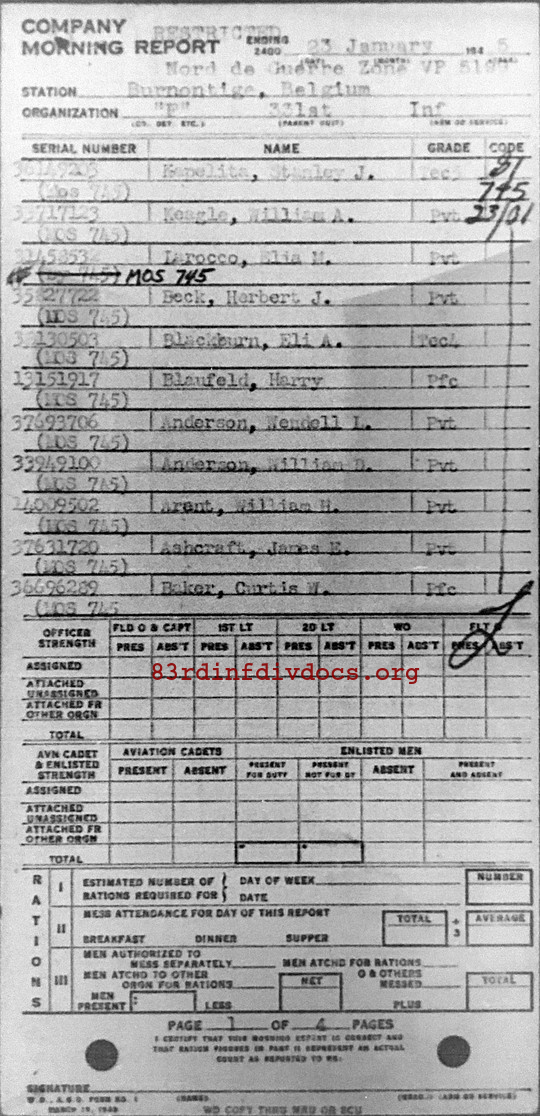 COMPANY RESTRICTED
MORNING REPORT ENDING 2400 23 January 194 5
Nord de Guerre Zone VP
STATION Burnontige, Belgium
ORGANIZATION "F" 331st Inf
(CO. DET. ETC.) (PARENT UNIT) (ARM OR SERVICE)
SERIAL NUMBER NAME GRADE CODE
36149203 Kapelita, Stanley J. Tec5 81
(Mos 745) 745
33717123 Keagle, William A. Pvt 23/01
(MOS 745)
Larocco, Elia M. Pvt
MOS 745
Beck, Herbert J. Pvt
(MOS 745)
Blackburn, Eli A. Tec4
(MOS 745)
13151917 Blaufeld, Harry Pfc
(MOS 745)
37693706 Anderson, Wendell L. Pvt
(MOS 745)
33949100 Anderson, William D. Pvt
(MOS 745)
14009502 Arent, William H. Pvt
(MOS 745)
37631720 Ashcraft, James E. Pvt
(MOS 745)
36696289 Baker, Curtis W. Pfc
(MOS 745
OFFICER STRENGTH FLD O & CAPT 1ST LT 2D LT WO FLT O
PRES ABS'T PRES ABS'T PRES ABS'T PRES ABS'T PRES ABS'T
ASSIGNED
83rdinfdivdocs.org
ATTACHED UNASSIGNED
ATTACHED FR OTHER ORGN
TOTAL
AVN CADET & ENLISTED STRENGTH AVIATION CADETS ENLISTED MEN
PRESENT ABSENT PRESENT FOR DUTY PRESENT NOT FOR DY ABSENT PRESENT AND ABSENT
ASSIGNED
ATTACHED UNASSIGNED
ATTACHED FR OTHER ORGN
TOTAL
RATIONS
I ESTIMATED NUMBER OF RATIONS REQUIRED FOR { DAY OF WEEK NUMBER
DATE
II MESS ATTENDANCE FOR DAY OF THIS REPORT TOTAL ÷ 3 AVERAGE
BREAKFAST DINNER SUPPER
III MEN AUTHORIZED TO MESS SEPARATELY MEN ATCHD FOR RATIONS
MEN ATCHD TO OTHER ORGN FOR RATIONS NET O & OTHERS MESSED TOTAL
MEN PRESENT : LESS PLUS
PAGE 1 OF 4 PAGES
I CERTIFY THAT THIS MORNING REPORT IS CORRECT AND
THAT RATION FIGURES IN PART II REPRESENT AN ACTUAL
COUNT AS REPORTED TO ME:
SIGNATURE
W.D., A.G.O. FORM NO. 1 (NAME) (GRADE) (ARM OR SERVICE)
MARCH 19, WD COPY THRU MRU OR SCU